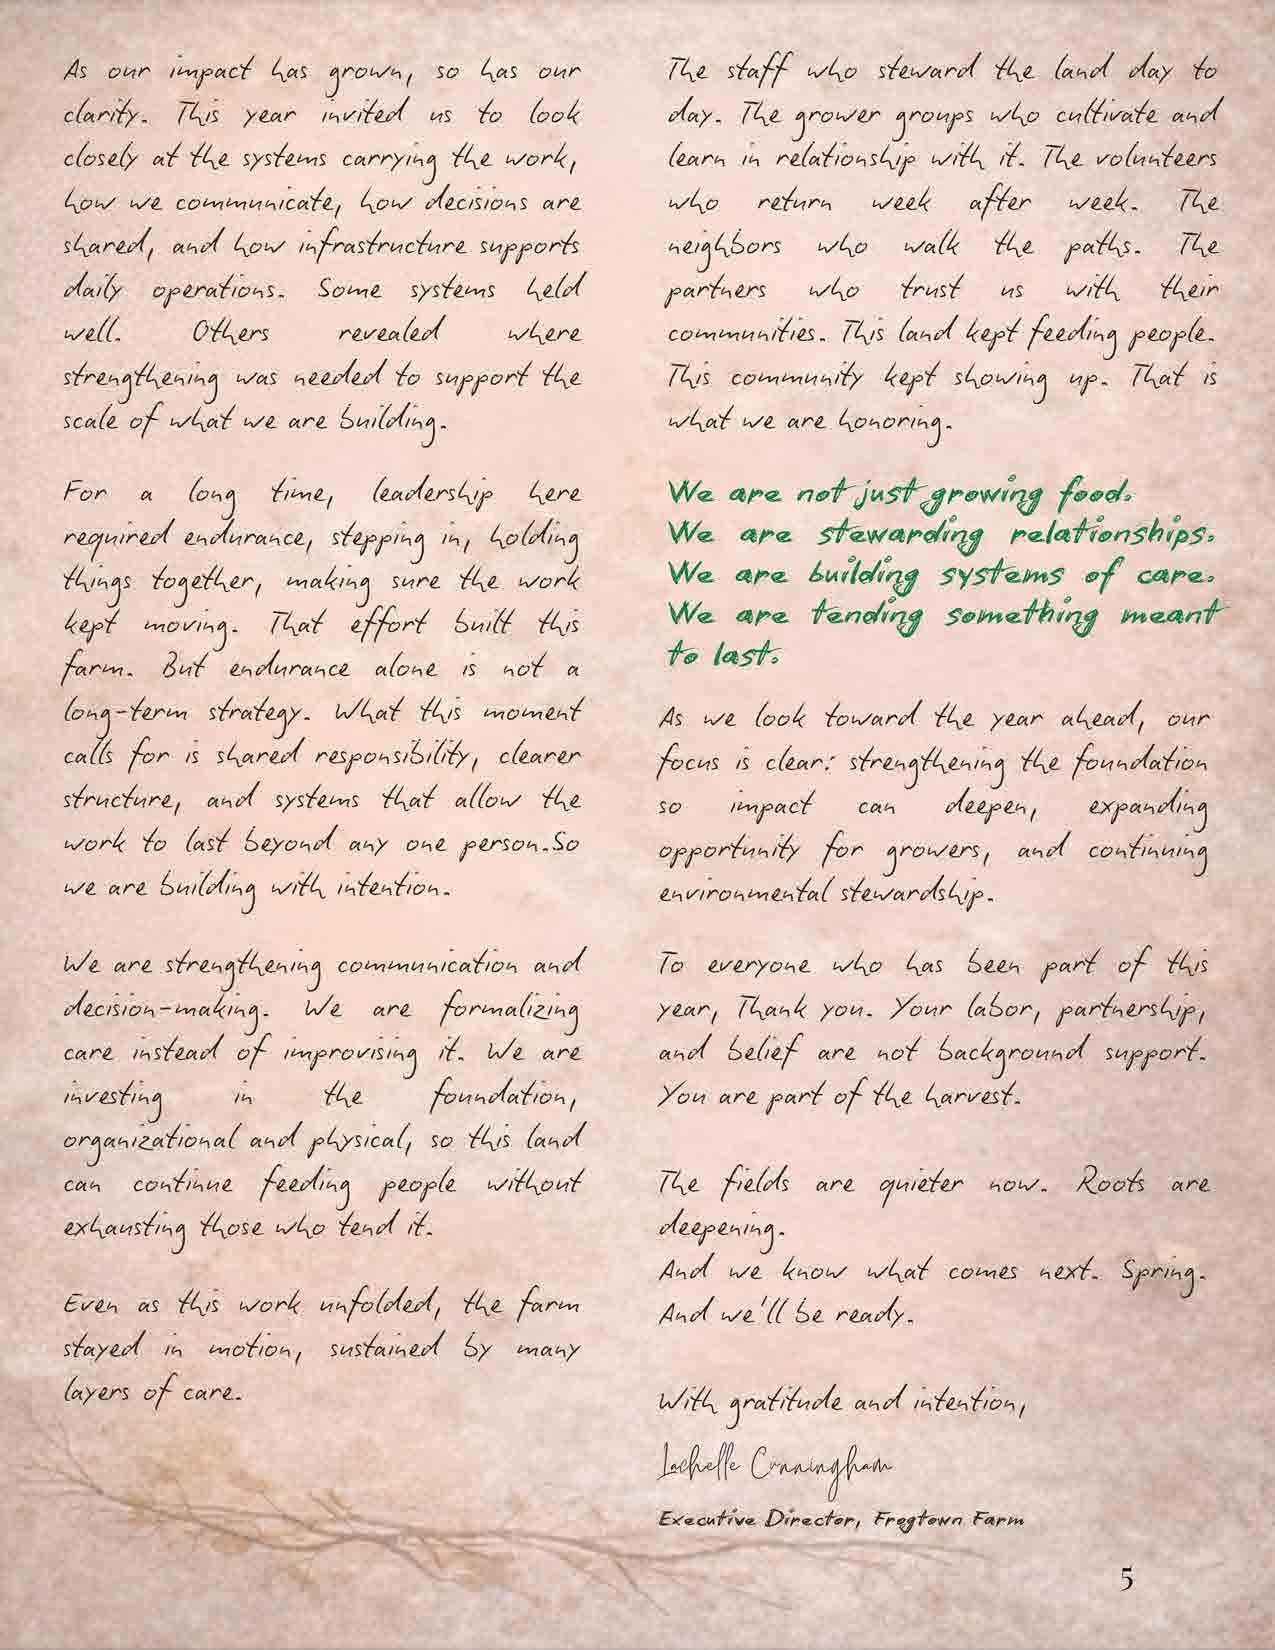 As our impact has grown, so has our
clarity. This year invited us to look
closely at the systems carrying the work,
how we communicate, how decisions are
shared, and how infrastructure supports
daily operations. Some systems held
well. Others revealed where
strengthening was needed to support the
scale of what we are building.
For a long time, leadership here
required endurance, stepping in, holding
things together, making sure the work
kept moving. That effort built this
farm. But endurance alone is not a
long-term strategy. What this moment
calls for is shared responsibility, clearer
structure, and systems that allow the
work to last beyond any one person.So
we are building with intention.
We are strengthening communication and
decision-making. We are formalizing
care instead of improvising it. We are
investing in the foundation,
organizational and physical, so this land
can continue feeding people without
exhausting those who tend it.
Even as this work unfolded, the farm
stayed in motion, sustained by many
layers of care.
The staff who steward the land day to
day. The grower groups who cultivate and
learn in relationship with it. The volunteers
who return week after week. The
neighbors who walk the paths. The
partners who trust us with their
communities. This land kept feeding people.
This community kept showing up. That is
what we are honoring.
We are not just growing food.
We are stewarding relationships.
We are building systems of care.
We are tending something meant
to last.
As we look toward the year ahead, our
focus is clear: strengthening the foundation
so impact can deepen, expanding
opportunity for growers, and continuing
environmental stewardship.
To everyone who has been part of this
year, Thank you. Your labor, partnership,
and belief are not background support.
You are part of the harvest.
The fields are quieter now. Roots are
deepening.
And we know what comes next. Spring.
And we'll be ready.
With gratitude and intention,
Lachelle Cunningham
Executive Director, Frogtown Farm
5